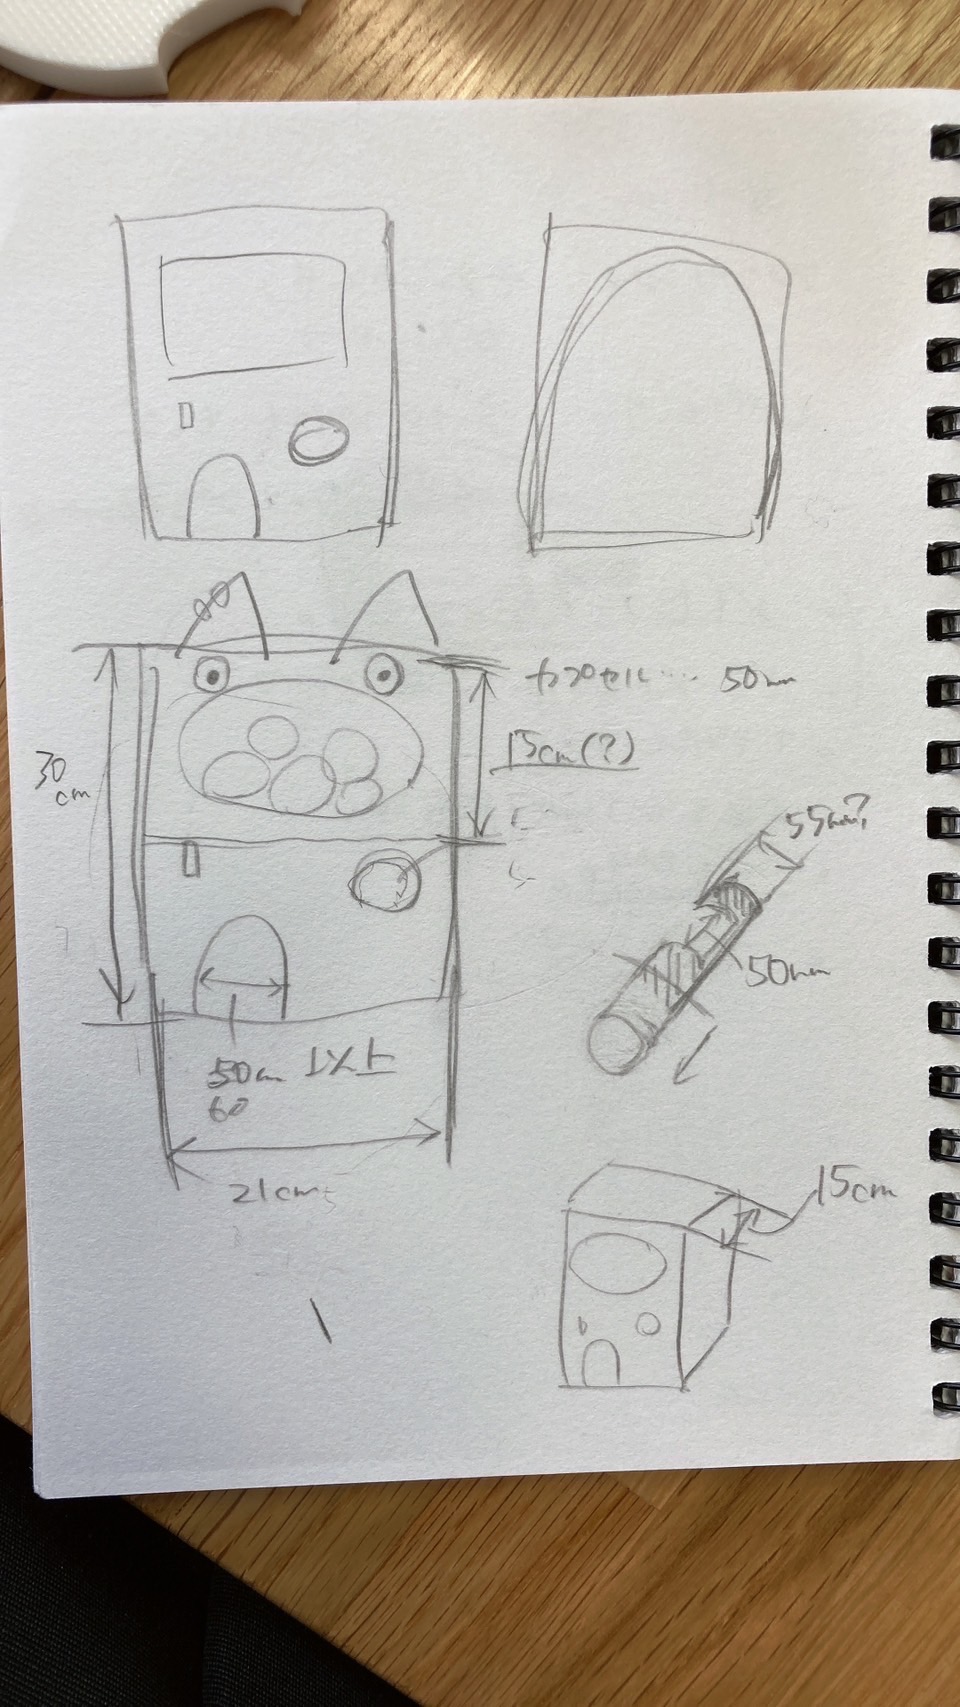 カプセル… 50mm
30
cm
15cm(?)
55mm?
50mm
50cm 以上
60
21cm
15cm